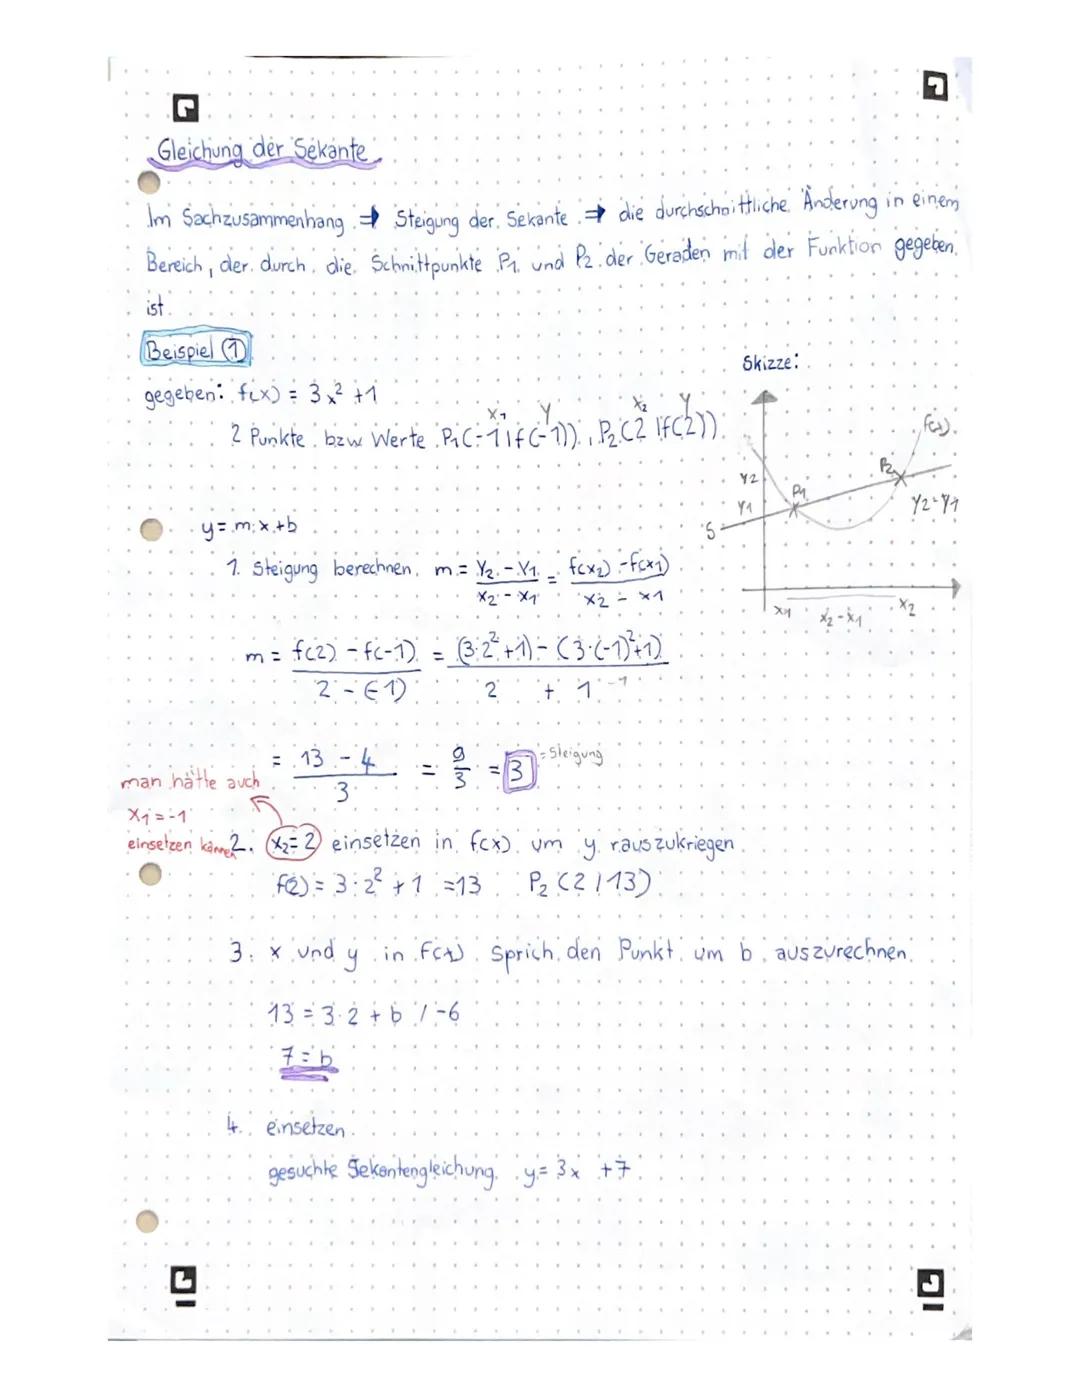 Gleichung der Sekante
Im Sachzusammenhang ⇒ Steigung der Sekante ⇒ die durchschnittliche Änderung in einem
Bereich, der durch die Schnittpunkte P1 und P2 der Geraden mit der Funktion gegeben
ist
Beispiel ①
gegeben: f(x) = 3x² +1
x1 y x2 y
2 Punkte bzw Werte P1(-1|f(-1)), P2(2|f(2))
Skizze:
f(x)
P2
y2
P1
y1
y2-y1
S
x1
x2-x1
x2
y = m·x+b
1. Steigung berechnen m = y2 - y1 / x2 - x1 = f(x2) - f(x1) / x2 - x1
m = f(2) - f(-1) / 2 - (-1) = (3·2²+1) - (3·(-1)²+1) / 2 + 1
= 13 - 4 / 3 = 9/3 = 3 = Steigung
man hätte auch
x1 = -1
einsetzen können
2. x2 = 2 einsetzen in f(x) um y rauszukriegen
f(2) = 3·2² + 1 = 13 P2 (2|13)
3. x und y in f(x) sprich den Punkt um b auszurechnen
13 = 3·2 + b /-6
7 = b
4. einsetzen
gesuchte Sekantengleichung y = 3x +7